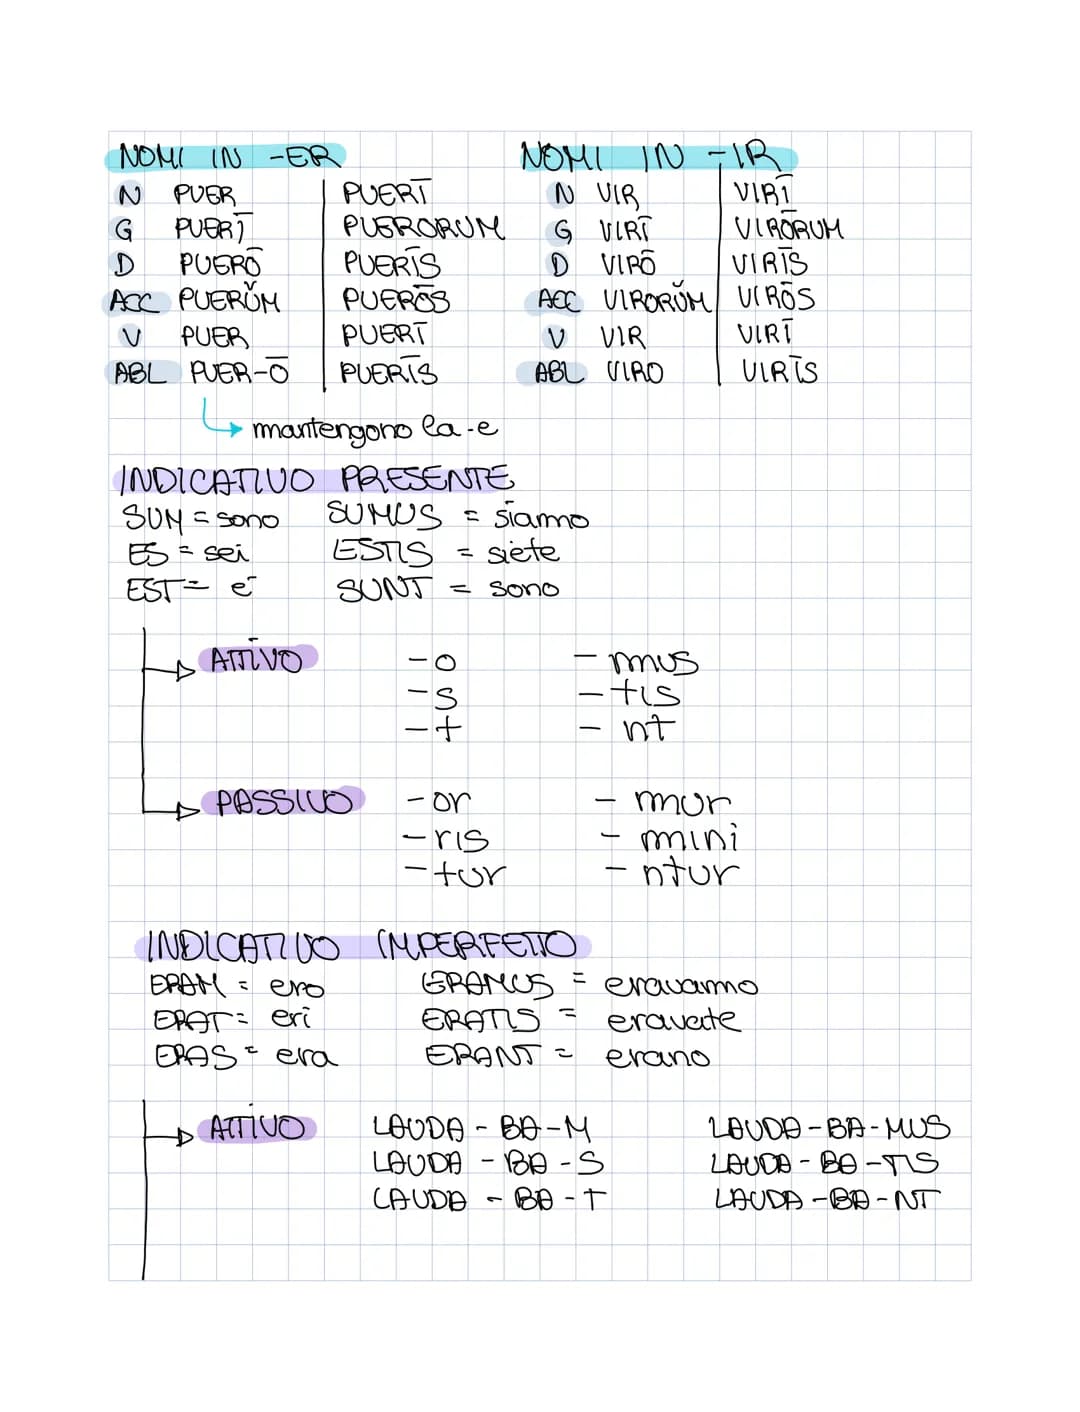 NOMI IN -ER NOMI IN -IR
N PUER PUERĪ N VIR VIRĪ
G PUERĪ PUERORUM G VIRĪ VIRŌRUM
D PUERŌ PUERĪS D VIRŌ VIRĪS
ACC PUERŬM PUERŌS ACC VIRORŬM VIRŌS
V PUER PUERĪ V VIR VIRĪ
ABL PUER-Ō PUERĪS ABL VIRO VIRĪS
mantengono la -e
INDICATIVO PRESENTE
SUM = sono SUMUS = siamo
ES = sei ESTIS = siete
EST = è SUNT = sono
ATTIVO -o -mus
-s -tis
-t -nt
PASSIVO -or -mur
-ris -mini
-tur -ntur
INDICATIVO IMPERFETTO
ERAM = ero ERAMUS = eravamo
ERAT = eri ERATIS = eravate
ERAS = era ERANT = erano
ATTIVO LAUDA-BA-M LAUDA-BA-MUS
LAUDA-BA-S LAUDA-BA-TIS
LAUDA-BA-T LAUDA-BA-NT